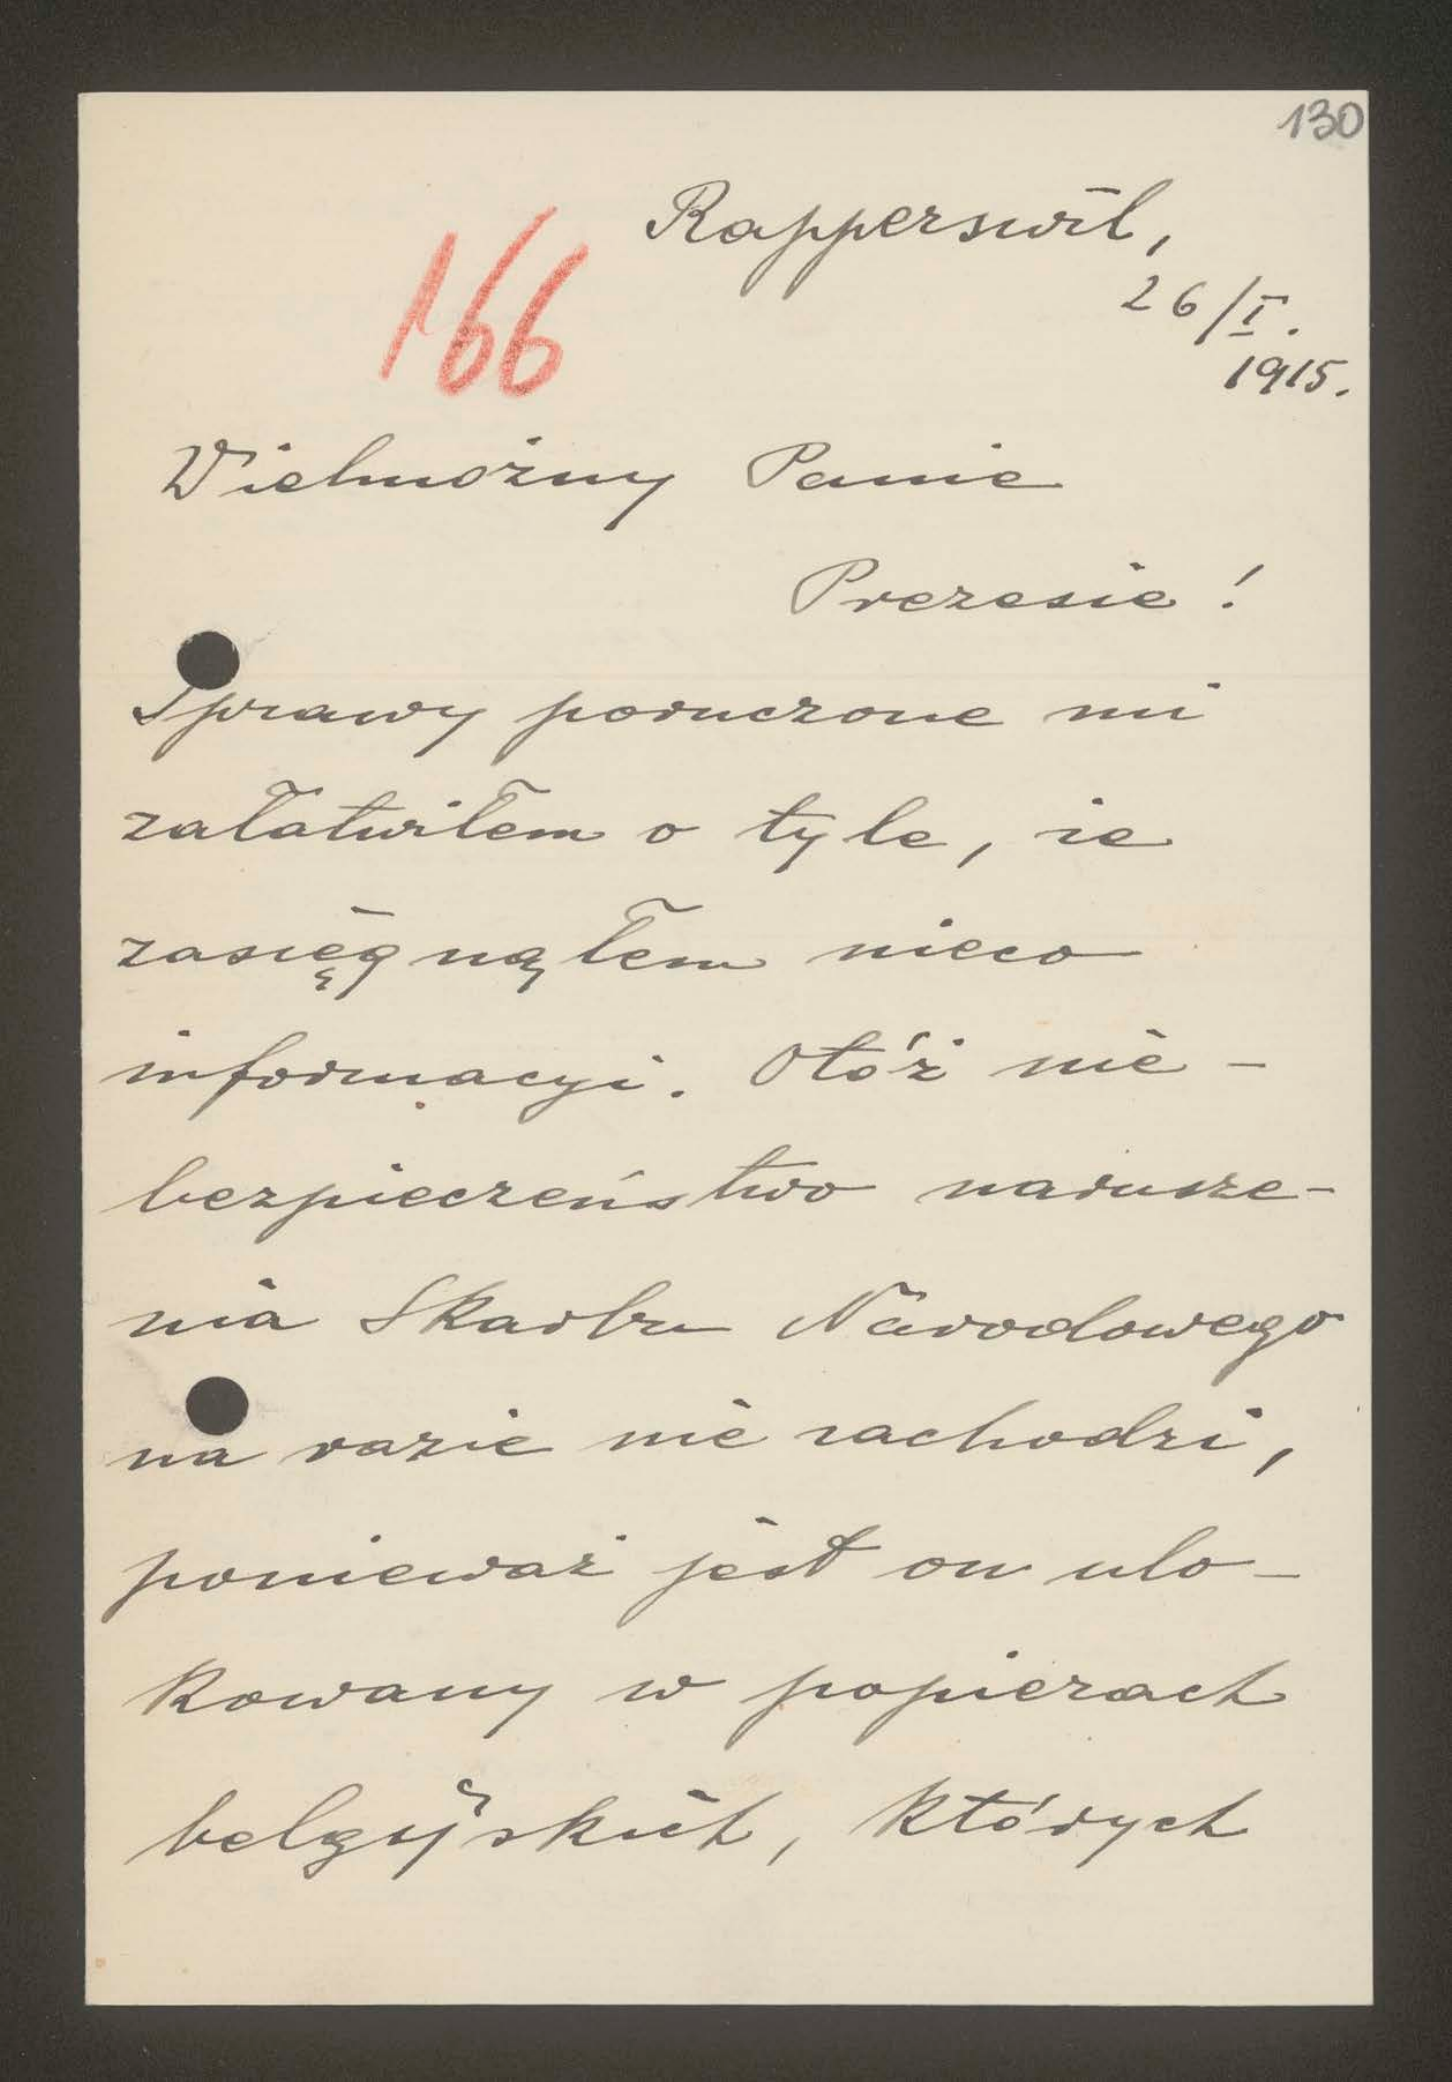 130
Rapperswil,
166
26/I.
1915.
Wielmożny Panie
Prezesie!
Sprawy poruczone mi
załatwiłem o tyle, że
zasięgnąłem nieco
informacyi. Otóż nie-
bezpieczeństwo narusze-
nia Skarbu Narodowego
na razie nie zachodzi,
ponieważ jest on ulo-
kowany w papierach
belgijskich, których